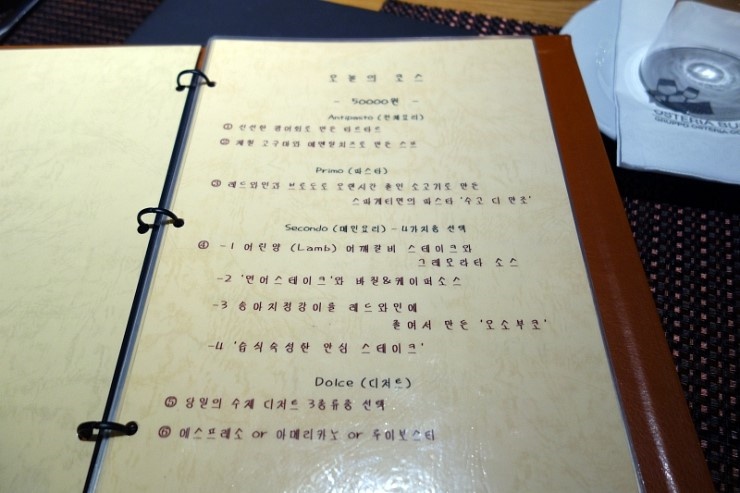 오늘의 코스
- 50000원 -
Antipasto (전채요리)
① 신선한 광어회로 만든 타르타르
② 제철 고구마와 에멘탈치즈로 만든 스프
Primo (파스타)
③ 레드와인과 브로도로 오랜시간 졸인 소고기로 만든
스파게티면의 파스타 '수고 디 만조'
Secondo (메인요리) - 4가지중 선택
④ -1 어린양 (Lamb) 어깨갈비 스테이크와
그레모라타 소스
-2 '연어스테이크'와 바질&케이퍼소스
-3 송아지정강이를 레드와인에
졸여서 만든 '오소부코'
-4 '습식숙성한 안심 스테이크'
Dolce (디저트)
⑤ 당일의 수제 디저트 3종류중 선택
⑥ 에스프레소 or 아메리카노 or 루이보스티
OSTERIA
GRUPPO OSTERIA